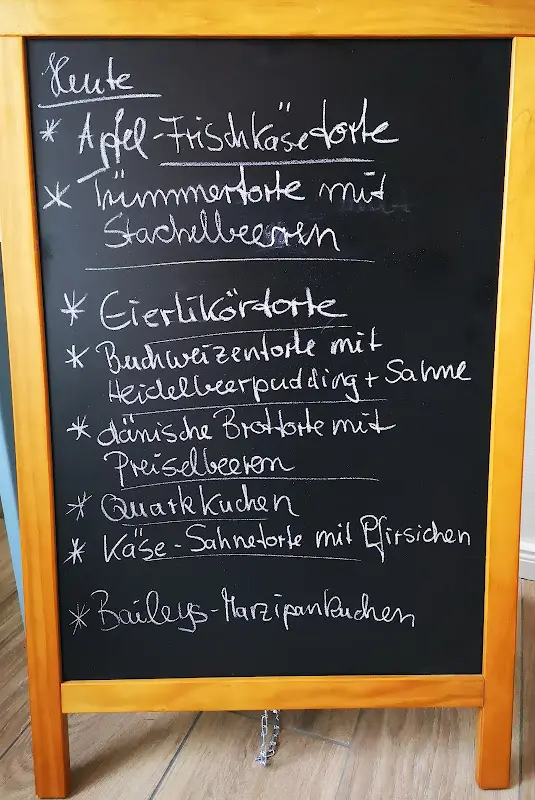 Heute
* Apfel-Frischkäsetorte
* Trümmertorte mit
Stachelbeeren
* Eierlikörtorte
* Buchweizentorte mit
Heidelbeerpudding + Sahne
* dänische Brottorte mit
Preiselbeeren
* Quarkkuchen
* Käse-Sahnetorte mit Pfirsichen
* Baileys-Marzipankuchen